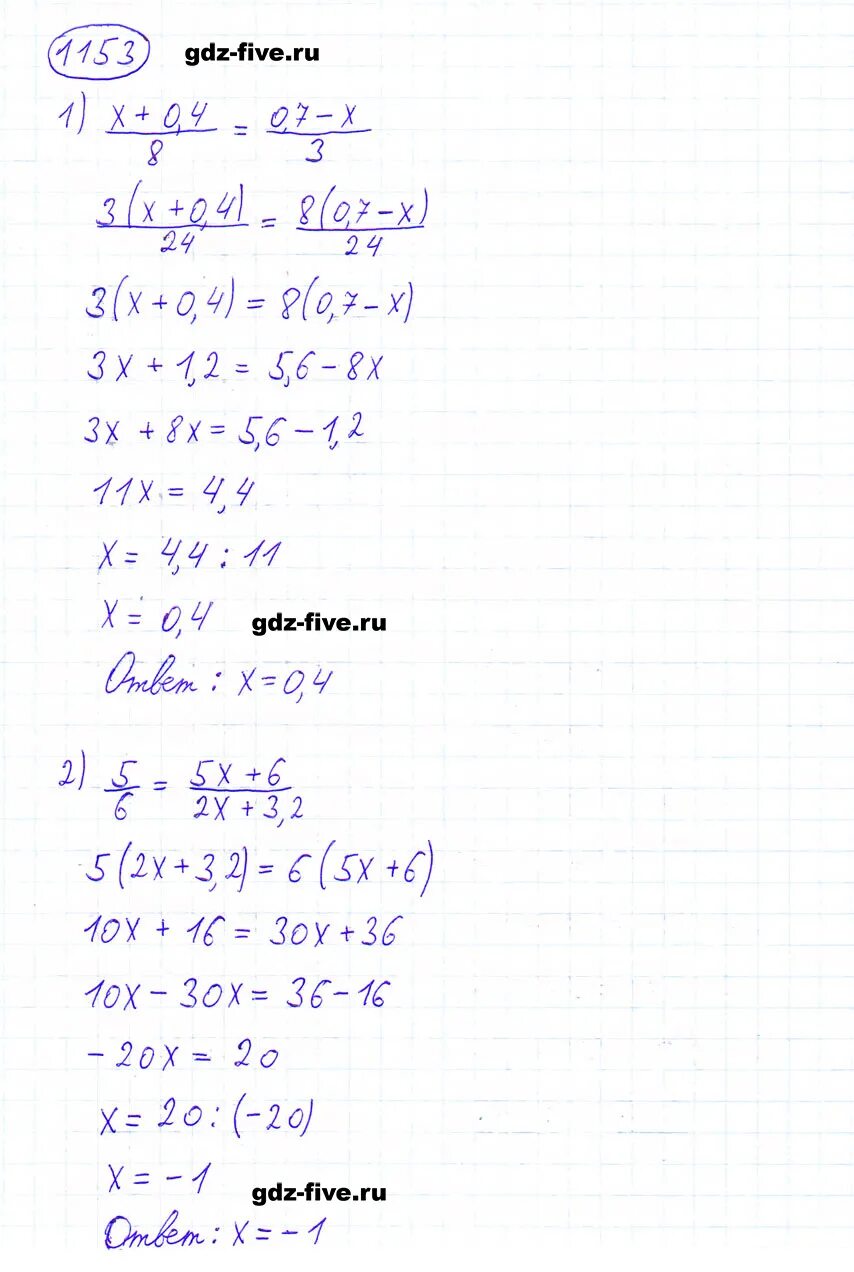 1153 gdz-five.ru
1) (x + 0,4)/8 = (0,7 - x)/3
3(x + 0,4)/24 = 8(0,7 - x)/24
3(x + 0,4) = 8(0,7 - x)
3x + 1,2 = 5,6 - 8x
3x + 8x = 5,6 - 1,2
11x = 4,4
x = 4,4 : 11
x = 0,4 gdz-five.ru
Ответ: x = 0,4
2) 5/6 = (5x + 6)/(2x + 3,2)
5(2x + 3,2) = 6(5x + 6)
10x + 16 = 30x + 36
10x - 30x = 36 - 16
-20x = 20
x = 20 : (-20)
x = -1 gdz-five.ru
Ответ: x = -1